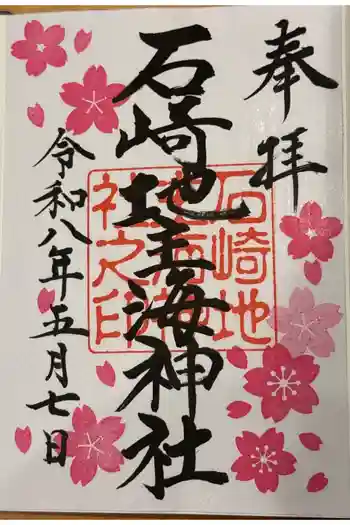 奉拝
石崎地主海神社
石崎地
主海神
社之印
令和八年五月七日